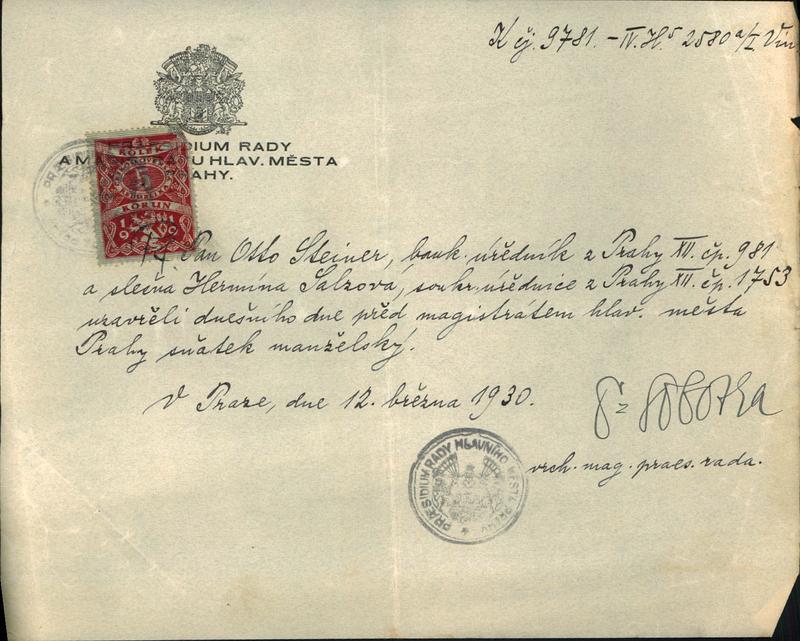 K čj. 9781. – IV. H. s 2580 a/I Vin
PRÆSIDIUM RADY
A MAGISTRÁTU HLAV. MĚSTA
PRAHY.
KOLEK
5
KORUN
Pan Otto Steiner, bank. úředník z Prahy XII. čp. 981
a slečna Hermína Salzová, soukr. úřednice z Prahy XII. čp. 1753
uzavřeli dnešního dne před magistrátem hlav. města
Prahy sňatek manželský.
V Praze, dne 12. března 1930.
Sobotka
vrch. mag. praes. rada.
PRÆSIDIUM RADY HLAVNÍHO MĚSTA PRAHY